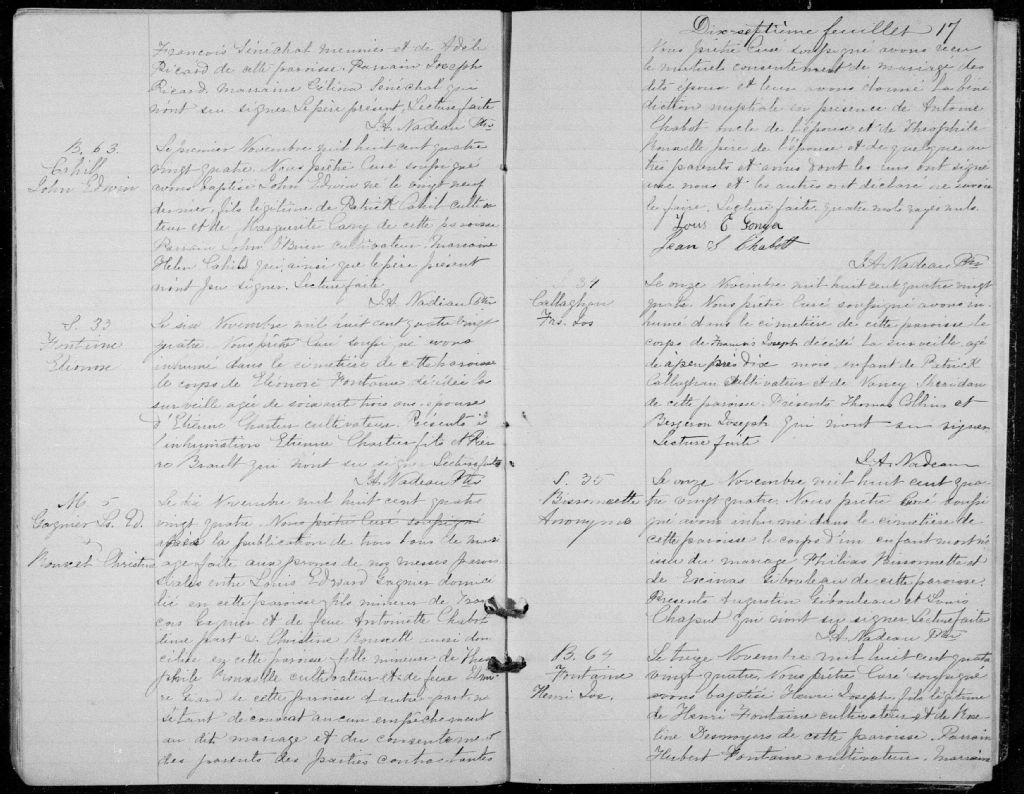 François Sénéchal meunier et de Adèle
Ricard de cette paroisse. Parrain Joseph
Ricard Marraine Célina Sénéchal qui
n'ont su signer. Le père présent. Lecture faite
J.A. Nadeau Ptre
B. 63.
Cahill
John Edwin
Le premier Novembre mil huit cent quatre
vingt quatre. Nous prêtre Curé soussigné
avons baptisé John Edwin né le vingt neuf
dernier, fils légitime de Patrick Cahil cultiva
teur et de Marguerite Casy de cette paroisse
Parrain John O'Brien cultivateur. Marraine
Helen Cahill qui, ainsi que le père présent
n'ont su signer. Lecture faite
J.A. Nadeau Ptre
S. 33
Fontaine
Eléonore
Le six Novembre mil huit cent quatre vingt
quatre. Nous prêtre Curé soussigné avons
inhumé dans le cimetière de cette paroisse
le corps de Eléonore Fontaine décédée la
surveille agée de soixante trois ans, épouse
d'Etienne Chartier cultivateur. Présents à
l'inhumation Etienne Chartier fils et Pier
re Brault qui n'ont su signer. Lecture faite
J.A. Nadeau Ptre
M. 5
Gagnier Ls. Ed.
Bonneet Christine
Le dix Novembre mil huit cent quatre
vingt quatre. Nous prêtre Curé soussigné
après la publication de trois bans de mari
age faite aux prones de nos messes parois
siales entre Louis Edward Gagnier domici
lié en cette paroisse fils mineur de Fran
çois Gagnier et de feue Antoinette Chabot
d'une part & Christine Bonneville aussi do
ciliée en cette paroisse fille mineure de Théo
phile cultivateur et de feue
de cette paroisse d'autre part ne
s'étant découvert aucun empêchement
au dit mariage et du consentement
des parents des parties contractantes
Dix-septième feuillet 17
Nous prêtre Curé soussigné avons reçu
le mutuel consentement de mariage des
dits époux et leur avons donné la béné
diction nuptiale en présence de Antoine
Chabot oncle de l'épouse et de Théophile
père de l'épouse et de quelques au
tres parents et amis dont les uns ont signé
avec nous et les autres ont déclaré ne savoir
le faire. Lecture faite quatre mots rayés nuls.
Louis E Gonya
Jean S Chabott
J.A. Nadeau Ptre
S. 34
Callaghan
Frs. Jos
Le onze Novembre mil huit cent quatre vingt
quatre. Nous prêtre Curé soussigné avons in
humé dans le cimetière de cette paroisse le
corps de Francis Joseph décédé la surveille, agé
de à peu près dix mois, enfant de Patrick
Callaghan cultivateur et de Nancy Sheridan
de cette paroisse. Présents Thomas Collins et
Bergeron Joseph qui n'ont su signer
Lecture faite
J.A. Nadeau
S. 35
Bissonnette
Anonyme
Le onze Novembre mil huit cent qua
tre vingt quatre. Nous prêtre Curé soussi
gné avons inhumé dans le cimetière de
cette paroisse le corps d'un enfant mort né
issu du mariage Philias Bissonnette et
de Exinas Gibouleau de cette paroisse.
Présents Augustin Gibouleau et Louis
Chaput qui n'ont su signer. Lecture faite
J.A. Nadeau Ptre
B. 64
Fontaine
Henri Jos.
Le treize Novembre mil huit cent quatre
vingt quatre, Nous prêtre Curé soussigné
avons baptisé Henri Joseph, fils légitime
de Henri Fontaine cultivateur et de Eme
line Desnoyers de cette paroisse. Parrain
Hubert Fontaine cultivateur. Marraine